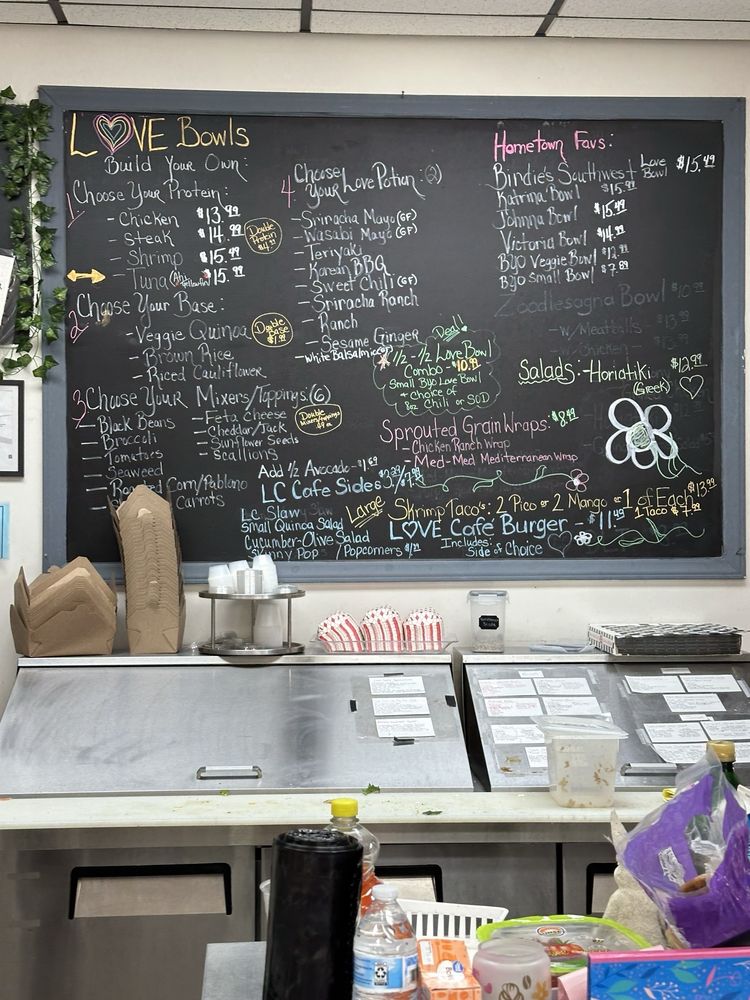 LOVE Bowls
Build Your Own:
1 Choose Your Protein:
- Chicken $13.99
- Steak $14.99
- Shrimp $15.99
- Tuna $15.99
Double Protein
2 Choose Your Base:
- Veggie Quinoa
- Brown Rice
- Riced Cauliflower
Double Base $1.99
3 Choose Your Mixers/Toppings: (6)
- Black Beans
- Broccoli
- Tomatoes
- Seaweed
Corn/Poblano
Carrots
- Feta Cheese
- Cheddar/Jack
- Sunflower Seeds
- Scallions
Double Mixers/Toppings
Add 1/2 Avocado - $1.69
LC Cafe Sides
LC Slaw
Small Quinoa Salad
Cucumber-Olive Salad
Skinny Pop / Popcorners
Large
4 Choose Your Love Potion:
- Sriracha Mayo (GF)
- Wasabi Mayo (GF)
- Teriyaki
- Korean BBQ
- Sweet Chili (GF)
- Sriracha Ranch
- Ranch
- Sesame Ginger
White Balsamic
Deal!
1/2 - 1/2 Love Bowl
Combo - $10.99
Small Byo Love Bowl
+ choice of
8oz Chili or SOD
Sprouted Grain Wraps: $8.99
- Chicken Ranch Wrap
- Med-Med Mediterranean Wrap
Skrimp Taco's: 2 Pico or 2 Mango or 1 of Each $13.99
1 Taco $7.99
LOVE Café Burger - $11.49
Includes:
Side of Choice
Hometown Favs:
Birdie's Southwest Love Bowl $15.49
Katrina Bowl $15.99
Johnna Bowl $15.99
Victoria Bowl $14.99
Byo Veggie Bowl $12.99
Byo Small Bowl $7.89
Zoodlesagna Bowl $10.99
- w/ Meatballs - $13.99
- w/ Chicken
Salads: - Horiatiki $12.99
(Greek)